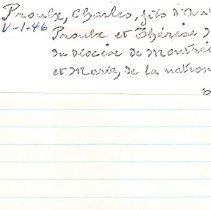 Proulx, Charles, fils d'Au
V-1-46 Proulx et Thérèse D
du diocèse de Montré
et Marie, de la nation